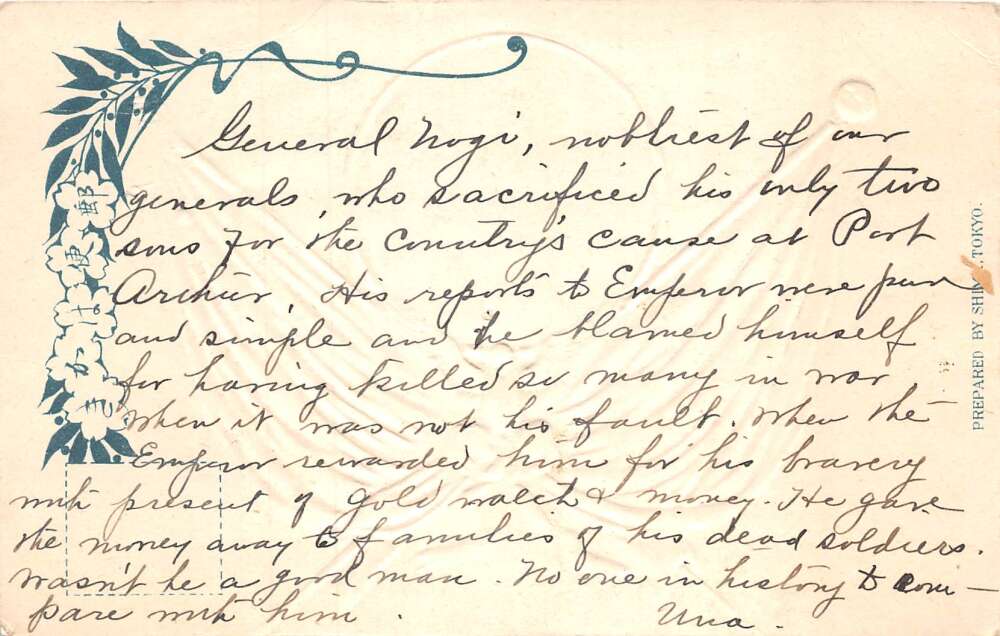 General Nogi, nobliest of our
generals, who sacrificed his only two
sons for the Country's cause at Port
Arthur. His reports to Emperor were pure
and simple and he blamed himself
for having killed so many in war
when it was not his fault. When the
Emperor rewarded him for his bravery
with present of gold watch & money. He gave
the money away to families of his dead soldiers.
Wasn't he a good man. No one in history to com-
pare with him.
Una.
郵便はがき
PREPARED BY TOKYO.